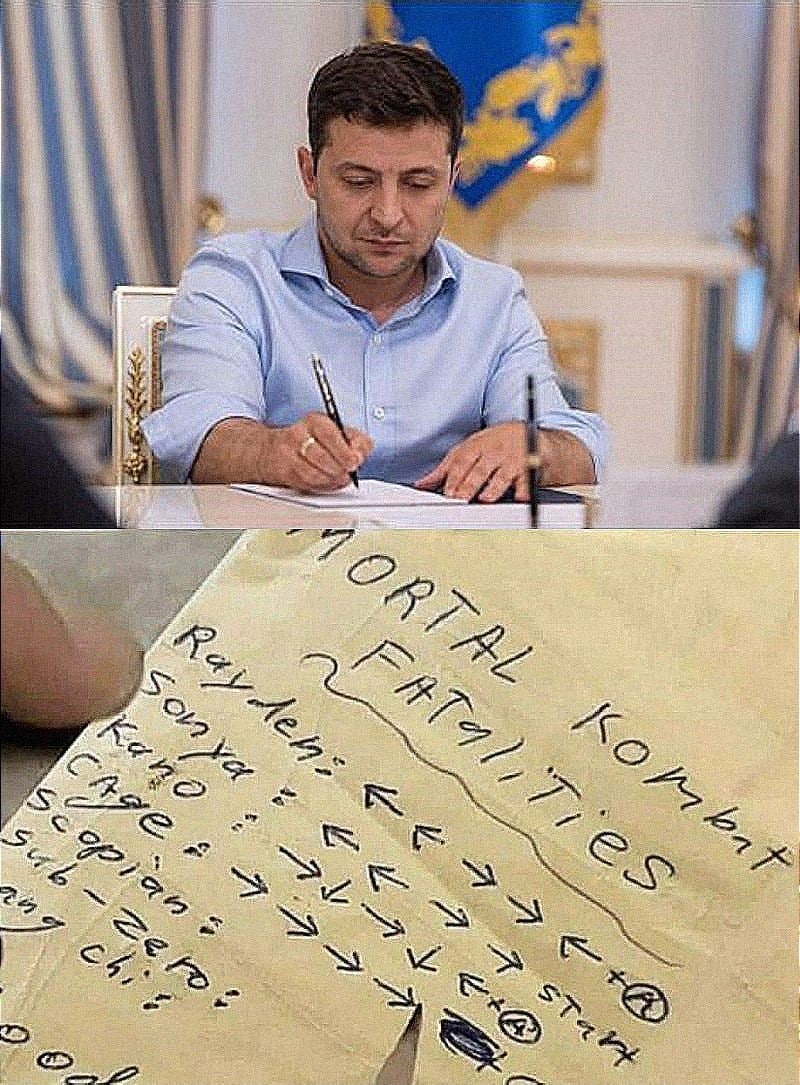 MORTAL KOMbAt
FATaliTies
Rayden: ← ← → → ← + Ⓐ
Sonya: ← ← → → START
Kano: → ↙ → ↙ ← + Ⓐ
CAge: → → → →
Scopian:
sub-zero:
ang chi:
ood